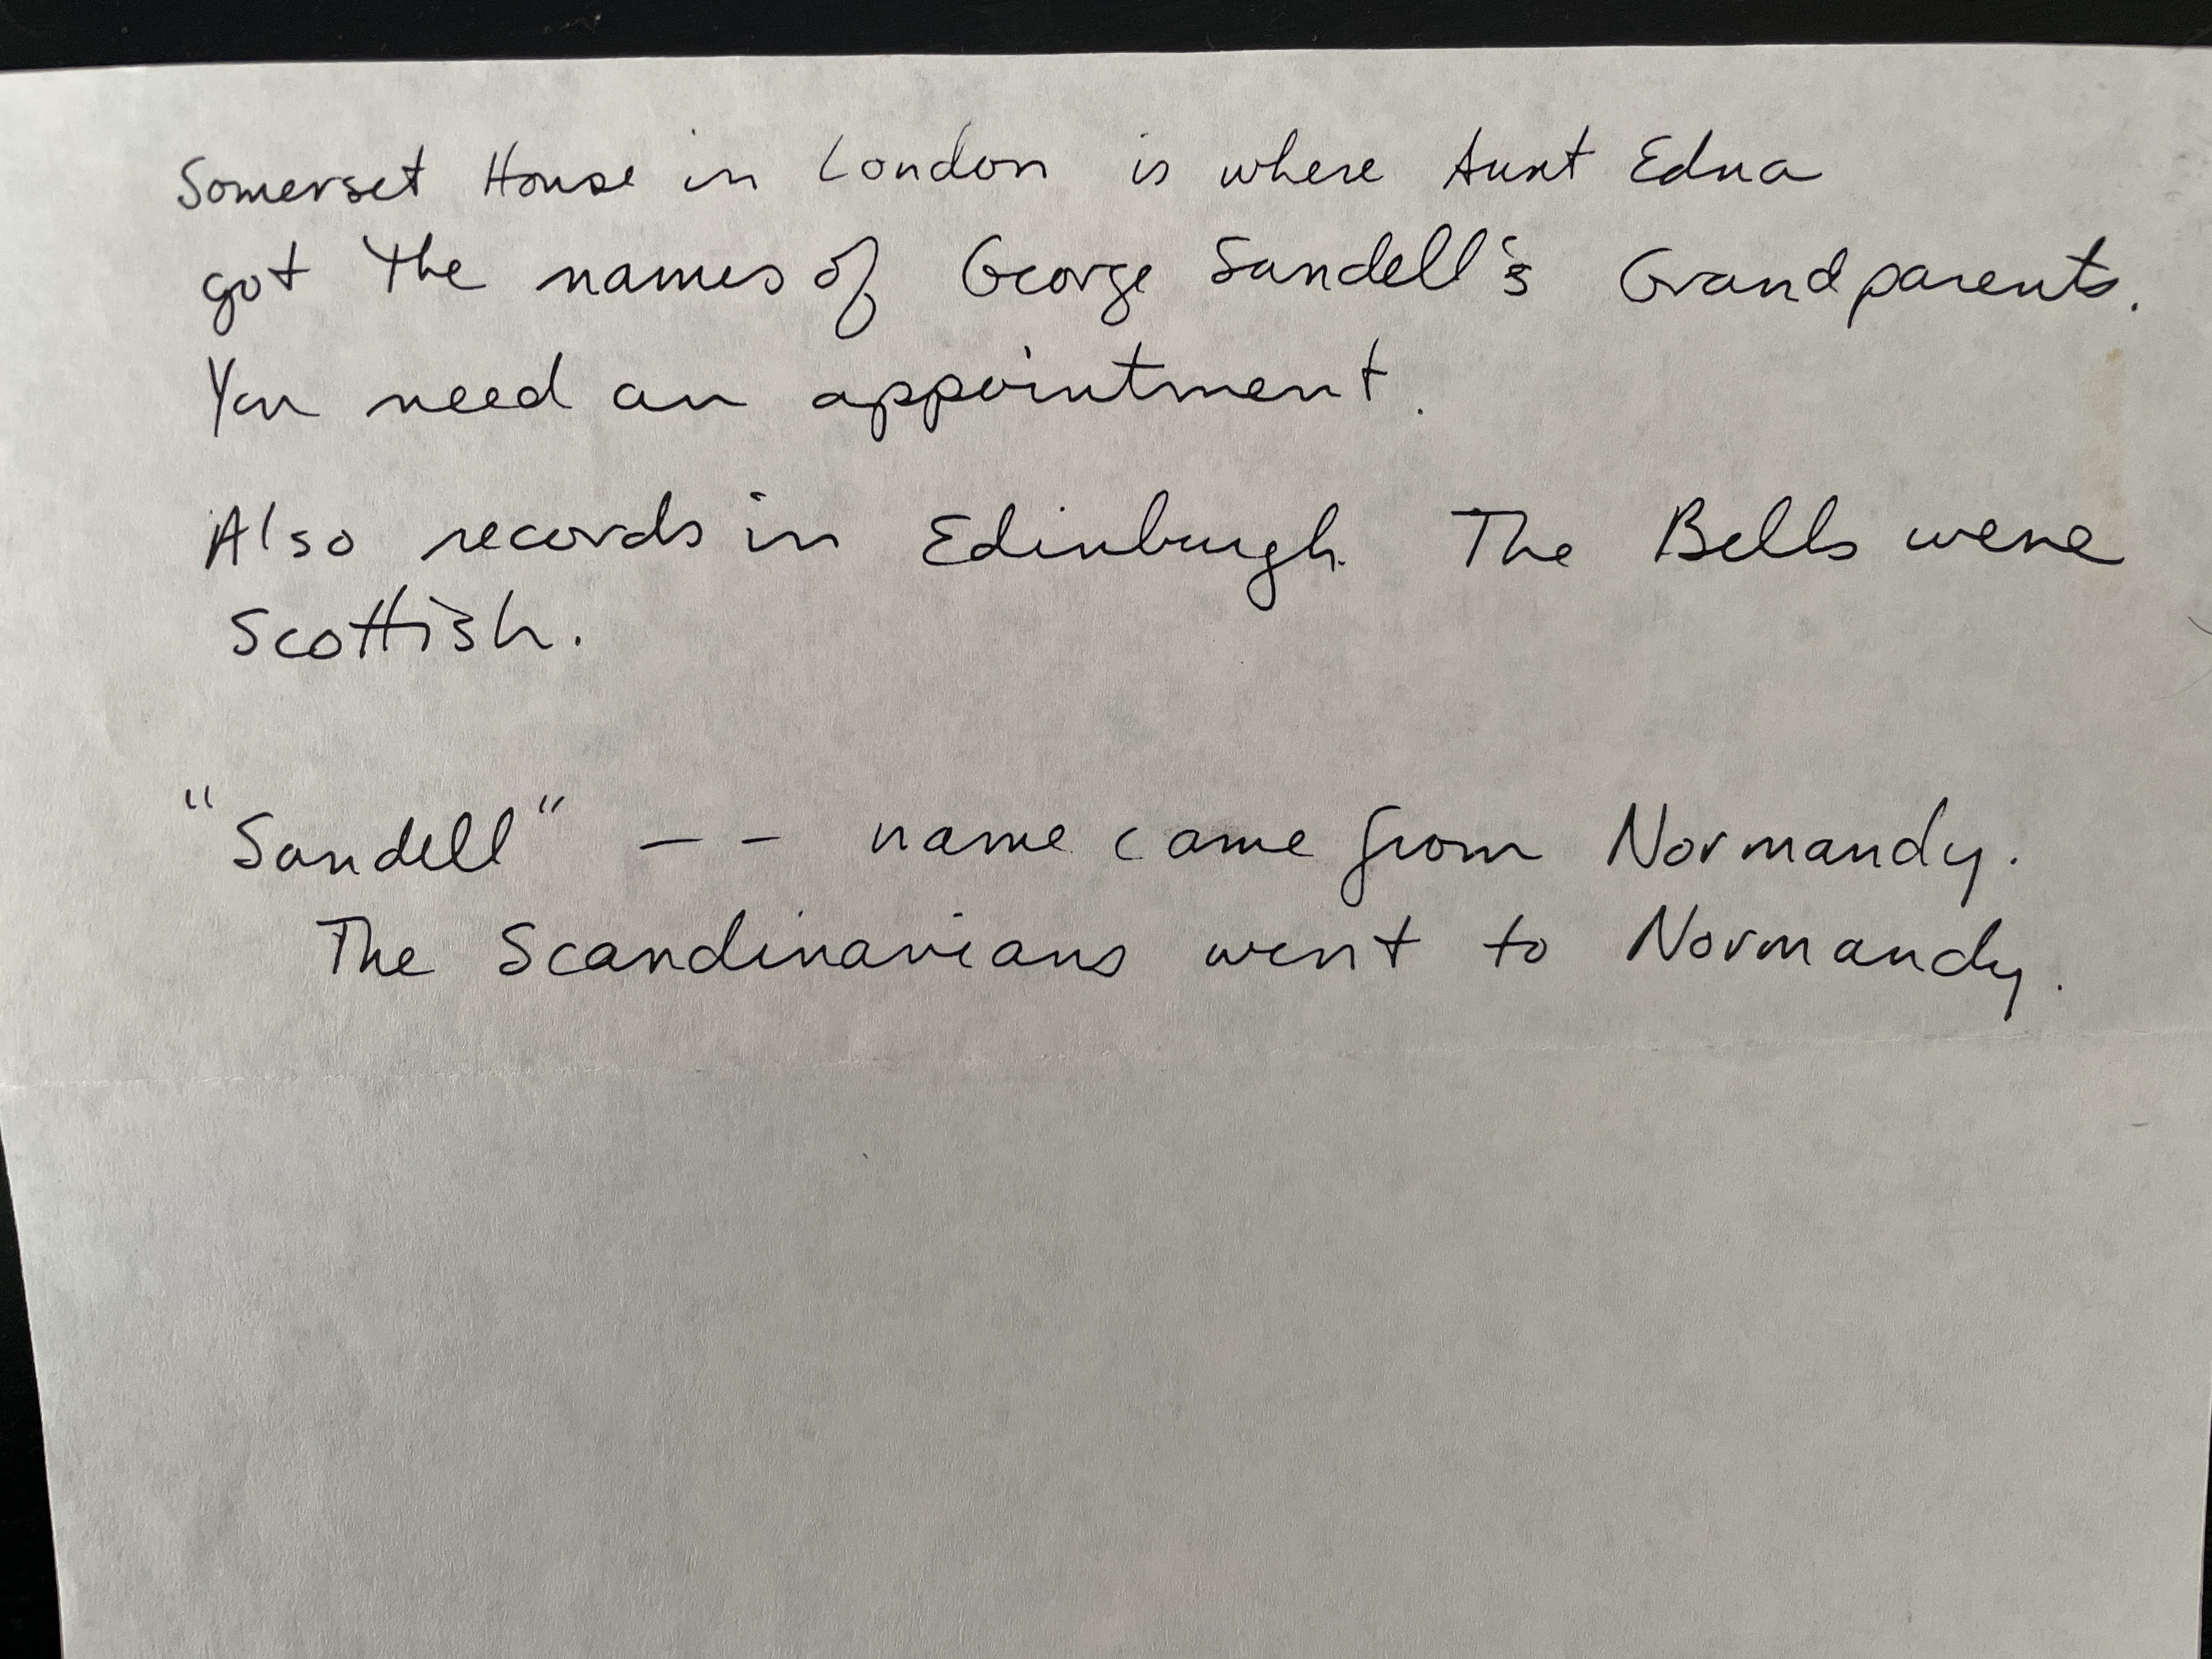 Somerset House in London is where Aunt Edna
got the names of George Sandell's Grandparents.
You need an appointment.
Also records in Edinburgh. The Bells were
Scottish.
"Sandell" — — name came from Normandy.
The Scandinavians went to Normandy.